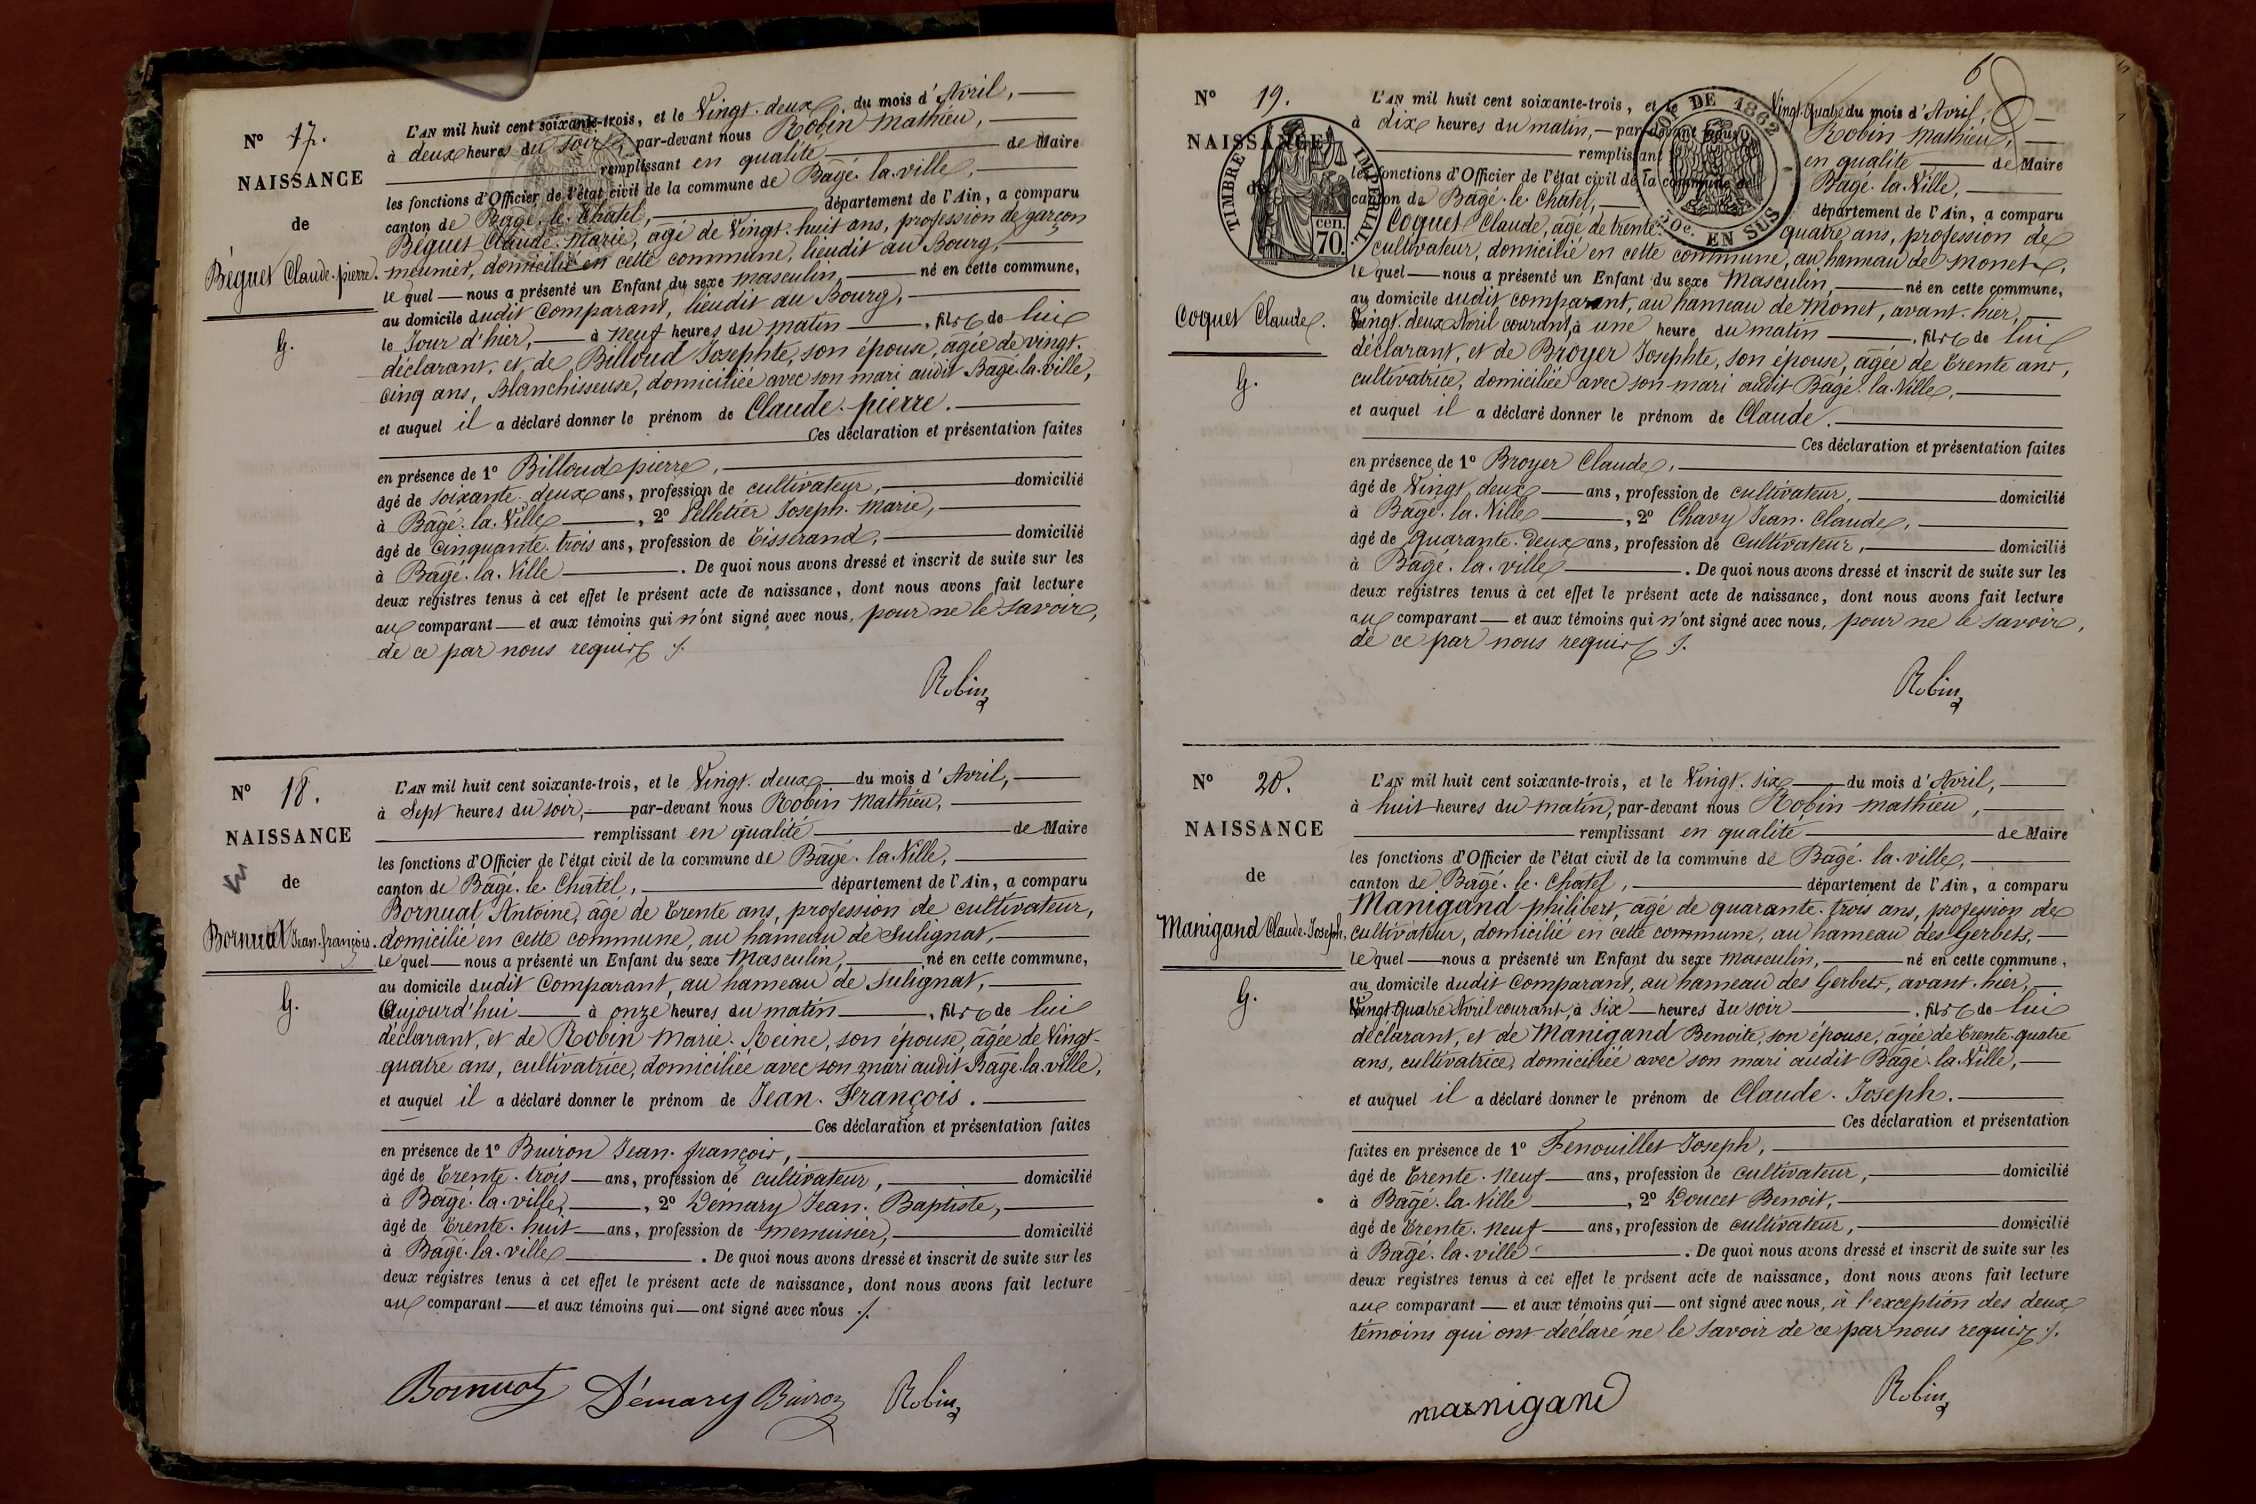 N° 17.
NAISSANCE
de
Béguet Claude-pierre.
G.
L'AN mil huit cent soixante-trois, et le Vingt-deux du mois d'Avril,
à deux heures du soir, par-devant nous Robin Mathieu,
remplissant en qualité de Maire
les fonctions d'Officier de l'état civil de la commune de Bâgé-la-ville,
canton de Bâgé-le-Chatel, département de l'Ain, a comparu
Béguet Claude-Marie, âgé de Vingt-huit ans, profession de garçon
meunier, domicilié en cette commune, lieudit au Bourg,
le quel nous a présenté un Enfant du sexe masculin, né en cette commune,
au domicile dudit Comparant, lieudit au Bourg,
le Jour d'hier, à neuf heures du matin, fils de lui
déclarant, et de Billoud Josephte, son épouse, âgée de vingt-
cinq ans, Blanchisseuse, domiciliée avec son mari audit Bâgé-la-ville,
et auquel il a déclaré donner le prénom de Claude-pierre.
Ces déclaration et présentation faites
en présence de 1° Billoud pierre,
âgé de soixante-deux ans, profession de cultivateur, domicilié
à Bâgé-la-Ville, 2° Pelletier Joseph-Marie,
âgé de cinquante-trois ans, profession de Tisserand, domicilié
à Bâgé-la-Ville. De quoi nous avons dressé et inscrit de suite sur les
deux registres tenus à cet effet le présent acte de naissance, dont nous avons fait lecture
au comparant et aux témoins qui n'ont signé avec nous, pour ne le savoir,
de ce par nous requis ./.
Robin
N° 18.
NAISSANCE
de
Bornuat Jean-françois.
G.
L'AN mil huit cent soixante-trois, et le Vingt-deux du mois d'Avril,
à Sept heures du soir, par-devant nous Robin Mathieu,
remplissant en qualité de Maire
les fonctions d'Officier de l'état civil de la commune de Bâgé-la-Ville,
canton de Bâgé-le-Chatel, département de l'Ain, a comparu
Bornuat Antoine, âgé de Trente ans, profession de cultivateur,
domicilié en cette commune, au hameau de Sulignat,
le quel nous a présenté un Enfant du sexe Masculin, né en cette commune,
au domicile dudit Comparant, au hameau de Sulignat,
Aujourd'hui à onze heures du matin, fils de lui
déclarant, et de Robin Marie-Reine, son épouse, âgée de Vingt-
quatre ans, cultivatrice, domiciliée avec son mari audit Bâgé-la-ville,
et auquel il a déclaré donner le prénom de Jean-François.
Ces déclaration et présentation faites
en présence de 1° Buiron Jean-françois,
âgé de Trente-trois ans, profession de cultivateur, domicilié
à Bâgé-la-ville, 2° Démary Jean-Baptiste,
âgé de Trente-huit ans, profession de menuisier, domicilié
à Bâgé-la-ville. De quoi nous avons dressé et inscrit de suite sur les
deux registres tenus à cet effet le présent acte de naissance, dont nous avons fait lecture
au comparant et aux témoins qui ont signé avec nous ./.
Bornuat Démary Buiron Robin
6
N° 19.
NAISSANCE
de
TIMBRE IMPÉRIAL.
70 cen.
Coquet Claude.
G.
COP DE 1862
50c. EN SUS
L'AN mil huit cent soixante-trois, et le Vingt-Quatre du mois d'Avril,
à dix heures du matin, par-devant nous Robin Mathieu,
remplissant en qualité de Maire
les fonctions d'Officier de l'état civil de la commune de Bâgé-la-Ville,
canton de Bâgé-le-Chatel, département de l'Ain, a comparu
Coquet Claude, âgé de trente-quatre ans, profession de
cultivateur, domicilié en cette commune, au hameau de Monet,
le quel nous a présenté un Enfant du sexe Masculin, né en cette commune,
au domicile dudit comparant, au hameau de Monet, avant-hier,
Vingt-deux Avril courant, à une heure du matin, fils de lui
déclarant, et de Broyer Josephte, son épouse, âgée de Trente ans,
cultivatrice, domiciliée avec son mari audit Bâgé-la-Ville,
et auquel il a déclaré donner le prénom de Claude.
Ces déclaration et présentation faites
en présence de 1° Broyer Claude,
âgé de Vingt-deux ans, profession de cultivateur, domicilié
à Bâgé-la-Ville, 2° Chavy Jean-Claude,
âgé de Quarante-Deux ans, profession de Cultivateur, domicilié
à Bâgé-la-ville. De quoi nous avons dressé et inscrit de suite sur les
deux registres tenus à cet effet le présent acte de naissance, dont nous avons fait lecture
au comparant et aux témoins qui n'ont signé avec nous, pour ne le savoir,
de ce par nous requis ./.
Robin
N° 20.
NAISSANCE
de
Manigand Claude-Joseph.
G.
L'AN mil huit cent soixante-trois, et le Vingt-six du mois d'Avril,
à huit heures du matin, par-devant nous Robin Mathieu,
remplissant en qualité de Maire
les fonctions d'Officier de l'état civil de la commune de Bâgé-la-ville,
canton de Bâgé-le-Chatel, département de l'Ain, a comparu
Manigand philibert, âgé de quarante-trois ans, profession de
cultivateur, domicilié en cette commune, au hameau des Gerbets,
le quel nous a présenté un Enfant du sexe masculin, né en cette commune,
au domicile dudit Comparant, au hameau des Gerbets, avant-hier,
Vingt-Quatre Avril courant, à six heures du soir, fils de lui
déclarant, et de Manigand Benoite, son épouse, âgée de Trente-quatre
ans, cultivatrice, domiciliée avec son mari audit Bâgé-la-Ville,
et auquel il a déclaré donner le prénom de Claude-Joseph.
Ces déclaration et présentation
faites en présence de 1° Fenouillet Joseph,
âgé de Trente-neuf ans, profession de cultivateur, domicilié
à Bâgé-la-Ville, 2° Doucet Benoit,
âgé de Trente-neuf ans, profession de cultivateur, domicilié
à Bâgé-la-ville. De quoi nous avons dressé et inscrit de suite sur les
deux registres tenus à cet effet le présent acte de naissance, dont nous avons fait lecture
au comparant et aux témoins qui ont signé avec nous, à l'exception des deux
témoins qui ont déclaré ne le savoir de ce par nous requis ./.
manigand Robin